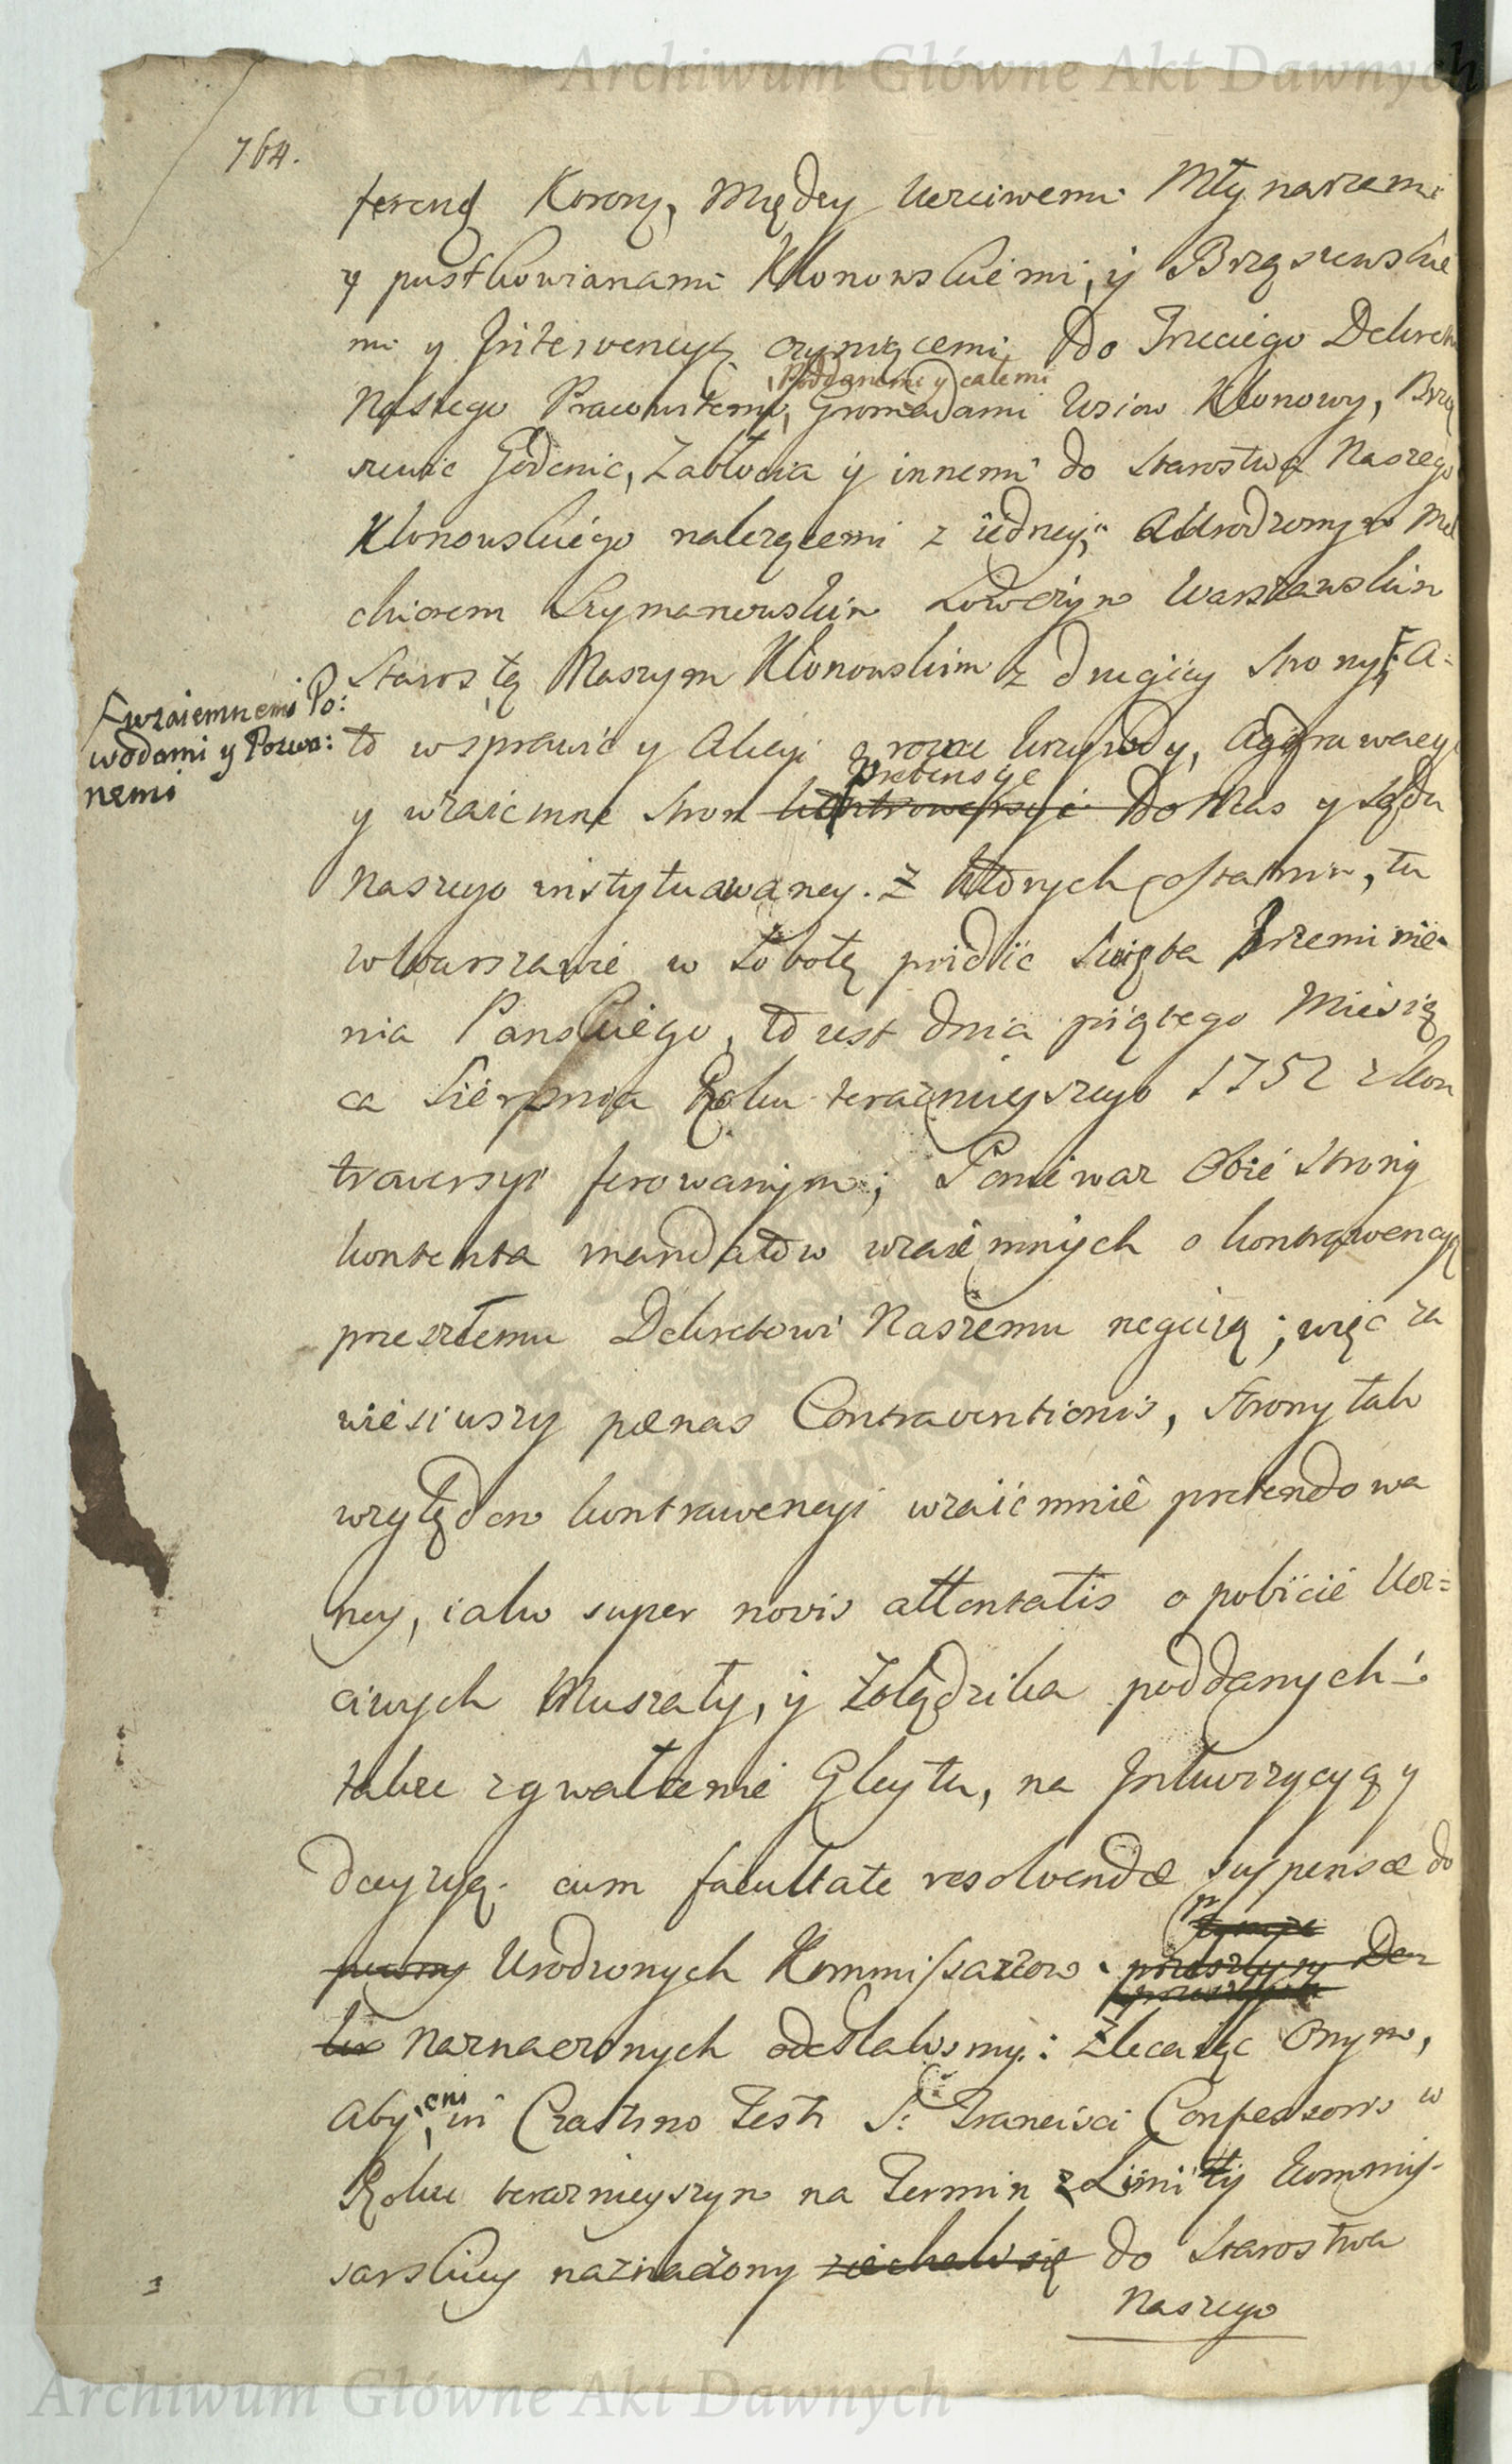 Archiwum Główne Akt Dawnych
764.
ferencyą Korony, Między Uczciwemi Młynarzami
y pustkowianami Klonowskiemi, y Brząszewskie
mi y Interwencyą czyniącemi, do Trzeciego Dekretu
Poddanemi y całemi
Naszego Pracowitemi, Gromadami Wsiow Klonowy, Brzą
szewic Godenic, Zabłocia y innemi do Starostwa Naszego
Klonowskiego należącemi z iedney; a Urodzonym Mel
chiorem Szymanowskim Łowczym Warszawskim
Starostą Naszym Klonowskim z drugiey Strony, A=
wzaiemnemi Po:
wodami y Pozwa:
nemi
to w sprawie y Akcyi o rożne krzywdy, Aggrawacye
pretensye
y wzaiemne Stron kontrowersye Do Nas y Sądu
Naszego instytuowaney. Z ktorych ostatnim, tu
w Warszawie w Sobotę poidie Święta Przemienie
nia Panskiego, to iest dnia piątego Miesią
ca Sierpnia Roku teraznieyszego 1752 z kon
trowersyi ferowanym; Ponieważ Obie Strony
kontenta mandatow wzaiemnych o kontrawencyą
przeszłemu Dekretowi Naszemu neguią; więc za
wiesiwszy pænas Contraventionis, Strony tak
względem kontrawencyi wzaiemnie pretendowa
ney, iako super novis attentatis o pobicie Ucz=
ciwych Muszały, y Żołędzika poddanych
także zgwałcenie Gleytu, na Inkwizycyą y
decyzyą cum facultate resolvendæ suspensæ do
Urodzonych Kommissarzow
naznaczonych odesłalismy: Zlecaiąc Onym,
Aby oni in Crastino Festi S: Francisci Confessoris w
Roku teraznieyszym na Termin z Limity Kommis
sarskiey naznaczony ziechali się do Starostwa
Naszego
Archiwum Główne Akt Dawnych